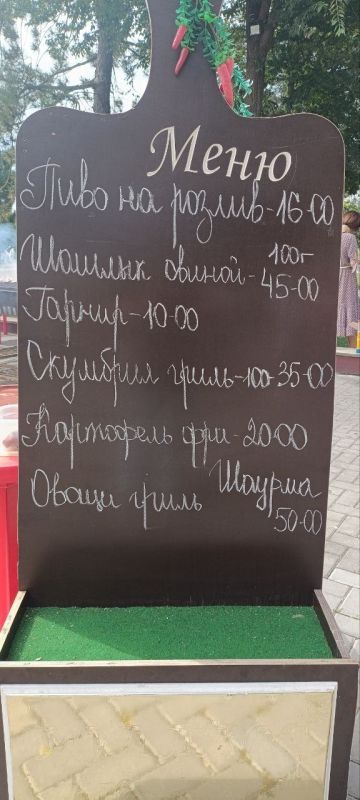 Меню
Пиво на розлив-16-00
Шашлык свиной-100г 45-00
Гарнир-10-00
Скумбрия гриль-100-35-00
Картофель фри-20-00
Овощи гриль Шаурма
50-00